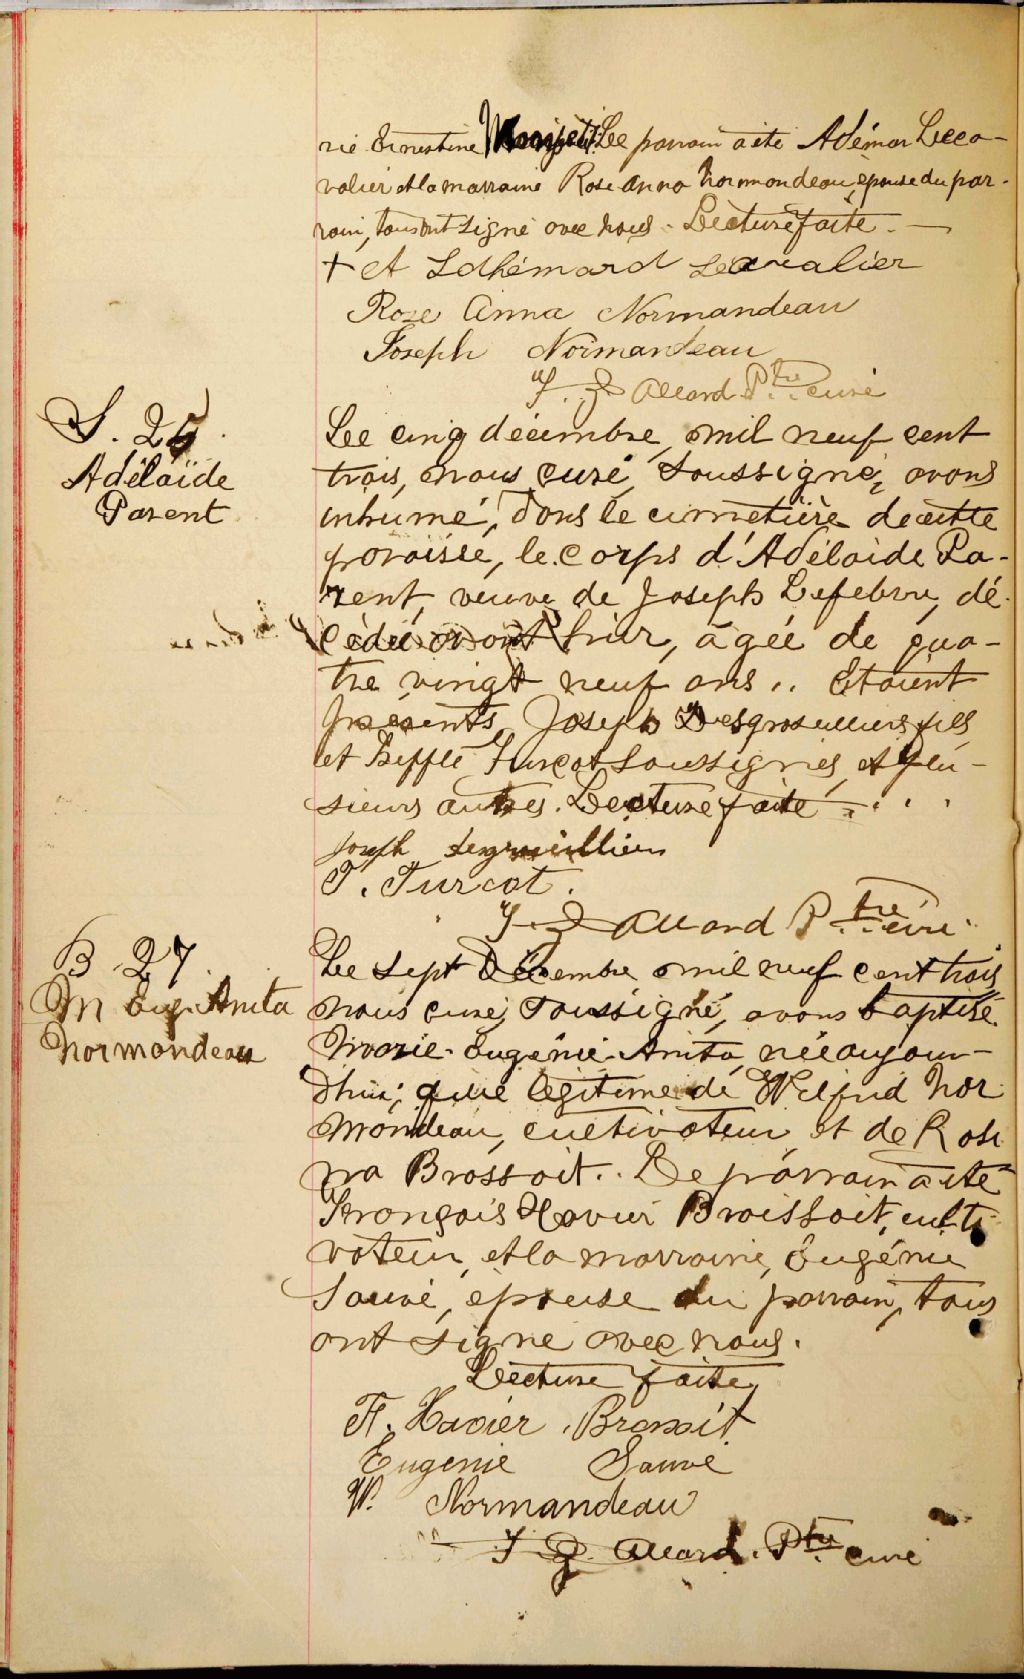 rie Ernestine Le parrain a été Adémar Leca-
valier et la marraine Rose anna Normandeau, épouse du par-
rain, tous ont signé avec nous. Lecture faite. —
+ et Adhémard Lecavalier
Rose Anna Normandeau
Joseph Normandeau
J. Z Allard Ptre curé
S. 26
Adélaïde
Parent
Le cinq décembre, mil neuf cent
trois, nous, curé, soussigné, avons
inhumé, dans le cimetière de cette
paroisse, le corps d'Adélaide Pa-
rent, veuve de Joseph Lefebvre, dé-
cédée avant hier, agée de qua-
tre vingt neuf ans.. Etaient
présents Joseph Desgroseilliers fils
et Turcot soussignés, et plu-
sieurs autres. Lecture faite....
Joseph
T. Turcot.
J Z Allard Ptre curé
B. 27
M Eug. Anita
Normandeau
Le sept Décembre mil neuf cent trois
nous curé, soussigné, avons baptisé
Marie-Eugénie-Anita, née aujour-
d'hui, fille légitime de Wilfrid Nor
mandeau, cultivateur et de Rosi
na Brossoit. Le parrain a été
François Xavier Broissoit, culti-
vateur, et la marraine, Eugénie
Sauvé, épouse du parrain, tous
ont signé avec nous.
Lecture faite,
F. Xavier Brossoit
Eugenie Sauvé
W. Normandeau
J Z Allard. Ptre curé